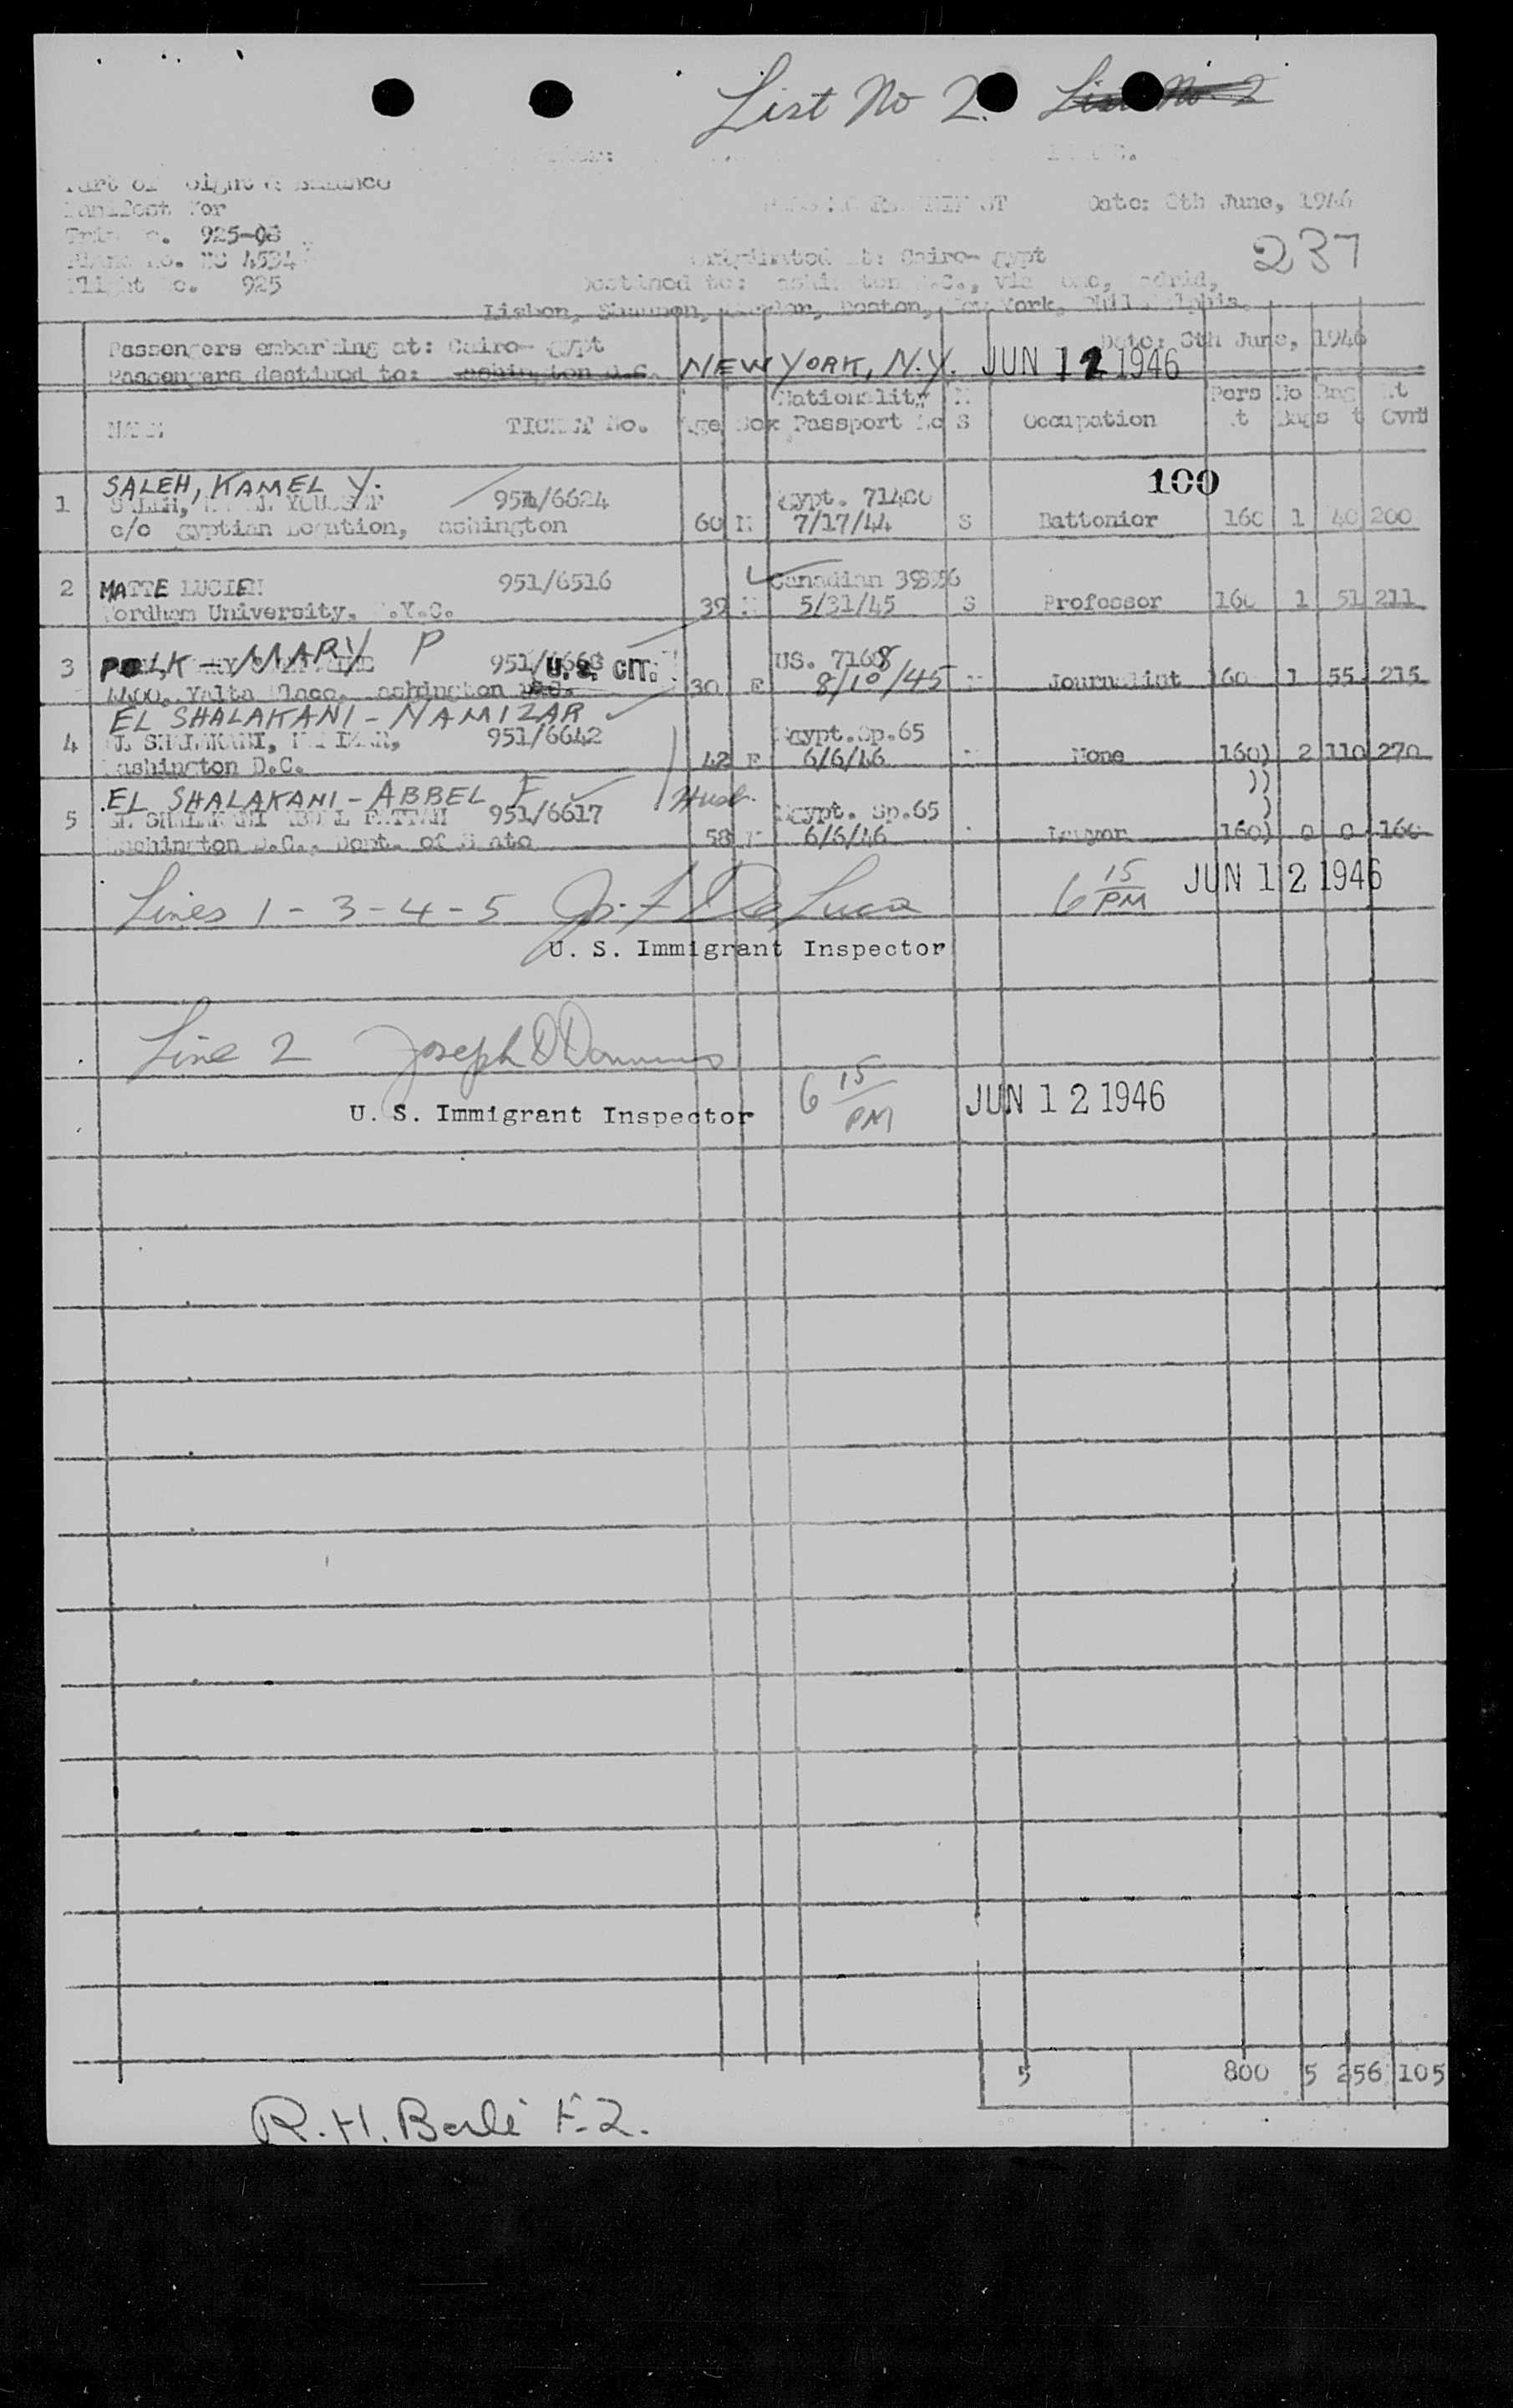 List No 2. List No. 2
Part of Weight & Balance
Manifest For
Trip No. 925-08 Date: 8th June, 1946
Plane No. NC 4534
Flight No. 925
237
Originated at: Cairo- Egypt
Destined to: Washington D.C., via Rome, Madrid,
Lisbon, Shannon, Boston, New York, Philadelphia.
Passengers embarking at: Cairo- Egypt Date: 8th June, 1946
Passengers destined to: Washington D.C. NEW YORK, N.Y. JUN 12 1946
NAME TICKET No. Age Sox Nationality Passport No M S Occupation Pers Wt No Bags Bag Wt Wt Cvrd
100
SALEH, KAMEL Y.
1 SALEH, KAMEL YOUSSEF 951/6624 Egypt. 71400
c/o Egyptian Legation, Washington 60 M 7/17/44 S 160 1 40 200
2 MATTE LUCIEN 951/6516 Canadian
Fordham University, N.Y.C. 39 M 5/31/45 S Professor 160 1 51 211
3 POLK - MARY P U.S. CIT. US. 7168
4400, Yalta Place, Washington D.C. 30 F 8/10/45 Journalist 160 1 55 215
EL SHALAKANI - NAMIZAR
4 EL SHALAKANI, NAMIZAR, 951/6642 Egypt.Sp.65
Washington D.C. 42 F 6/6/46 None 160) 2 110 270
EL SHALAKANI - ABBEL F Husb.
5 EL SHALAKANI ABDEL FATTAH 951/6617 Egypt. Sp.65
Washington D.C., Dept. of State 58 M 6/6/46 Lawyer 160) 0 0 160
Lines 1 - 3 - 4 - 5 De Luca 6 15 PM JUN 12 1946
U. S. Immigrant Inspector
Line 2 Joseph D
U. S. Immigrant Inspector 6 15 PM JUN 12 1946
5 800 5 256 105
R.H.